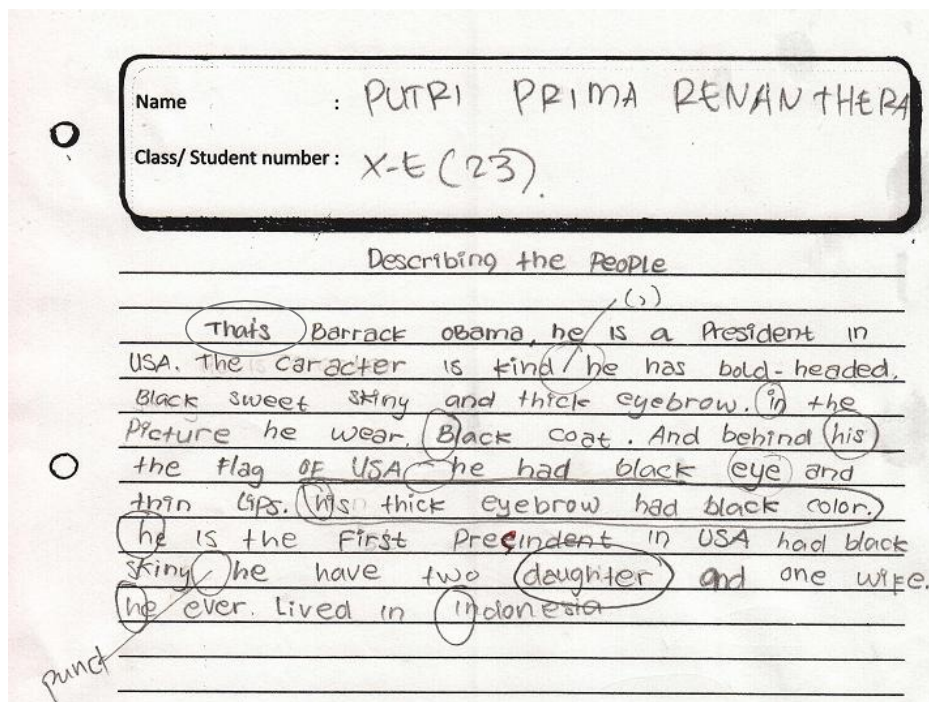 Name : PUTRI PRIMA RENANTHERA
Class/ Student number : X-E (23).
Describing the People
(,)
Thats Barrack oBama, he is a President in
USA. The caracter is kind he has bold-headed.
Black sweet skiny and thick eyebrow. in the
Picture he wear. Black coat. And behind his
the flag OF USA he had black eye and
thin Lips. his thick eyebrow had black color.
he is the First Precindent in USA had black
skiny he have two daughter and one wife.
he ever. Lived in indonesia
punct